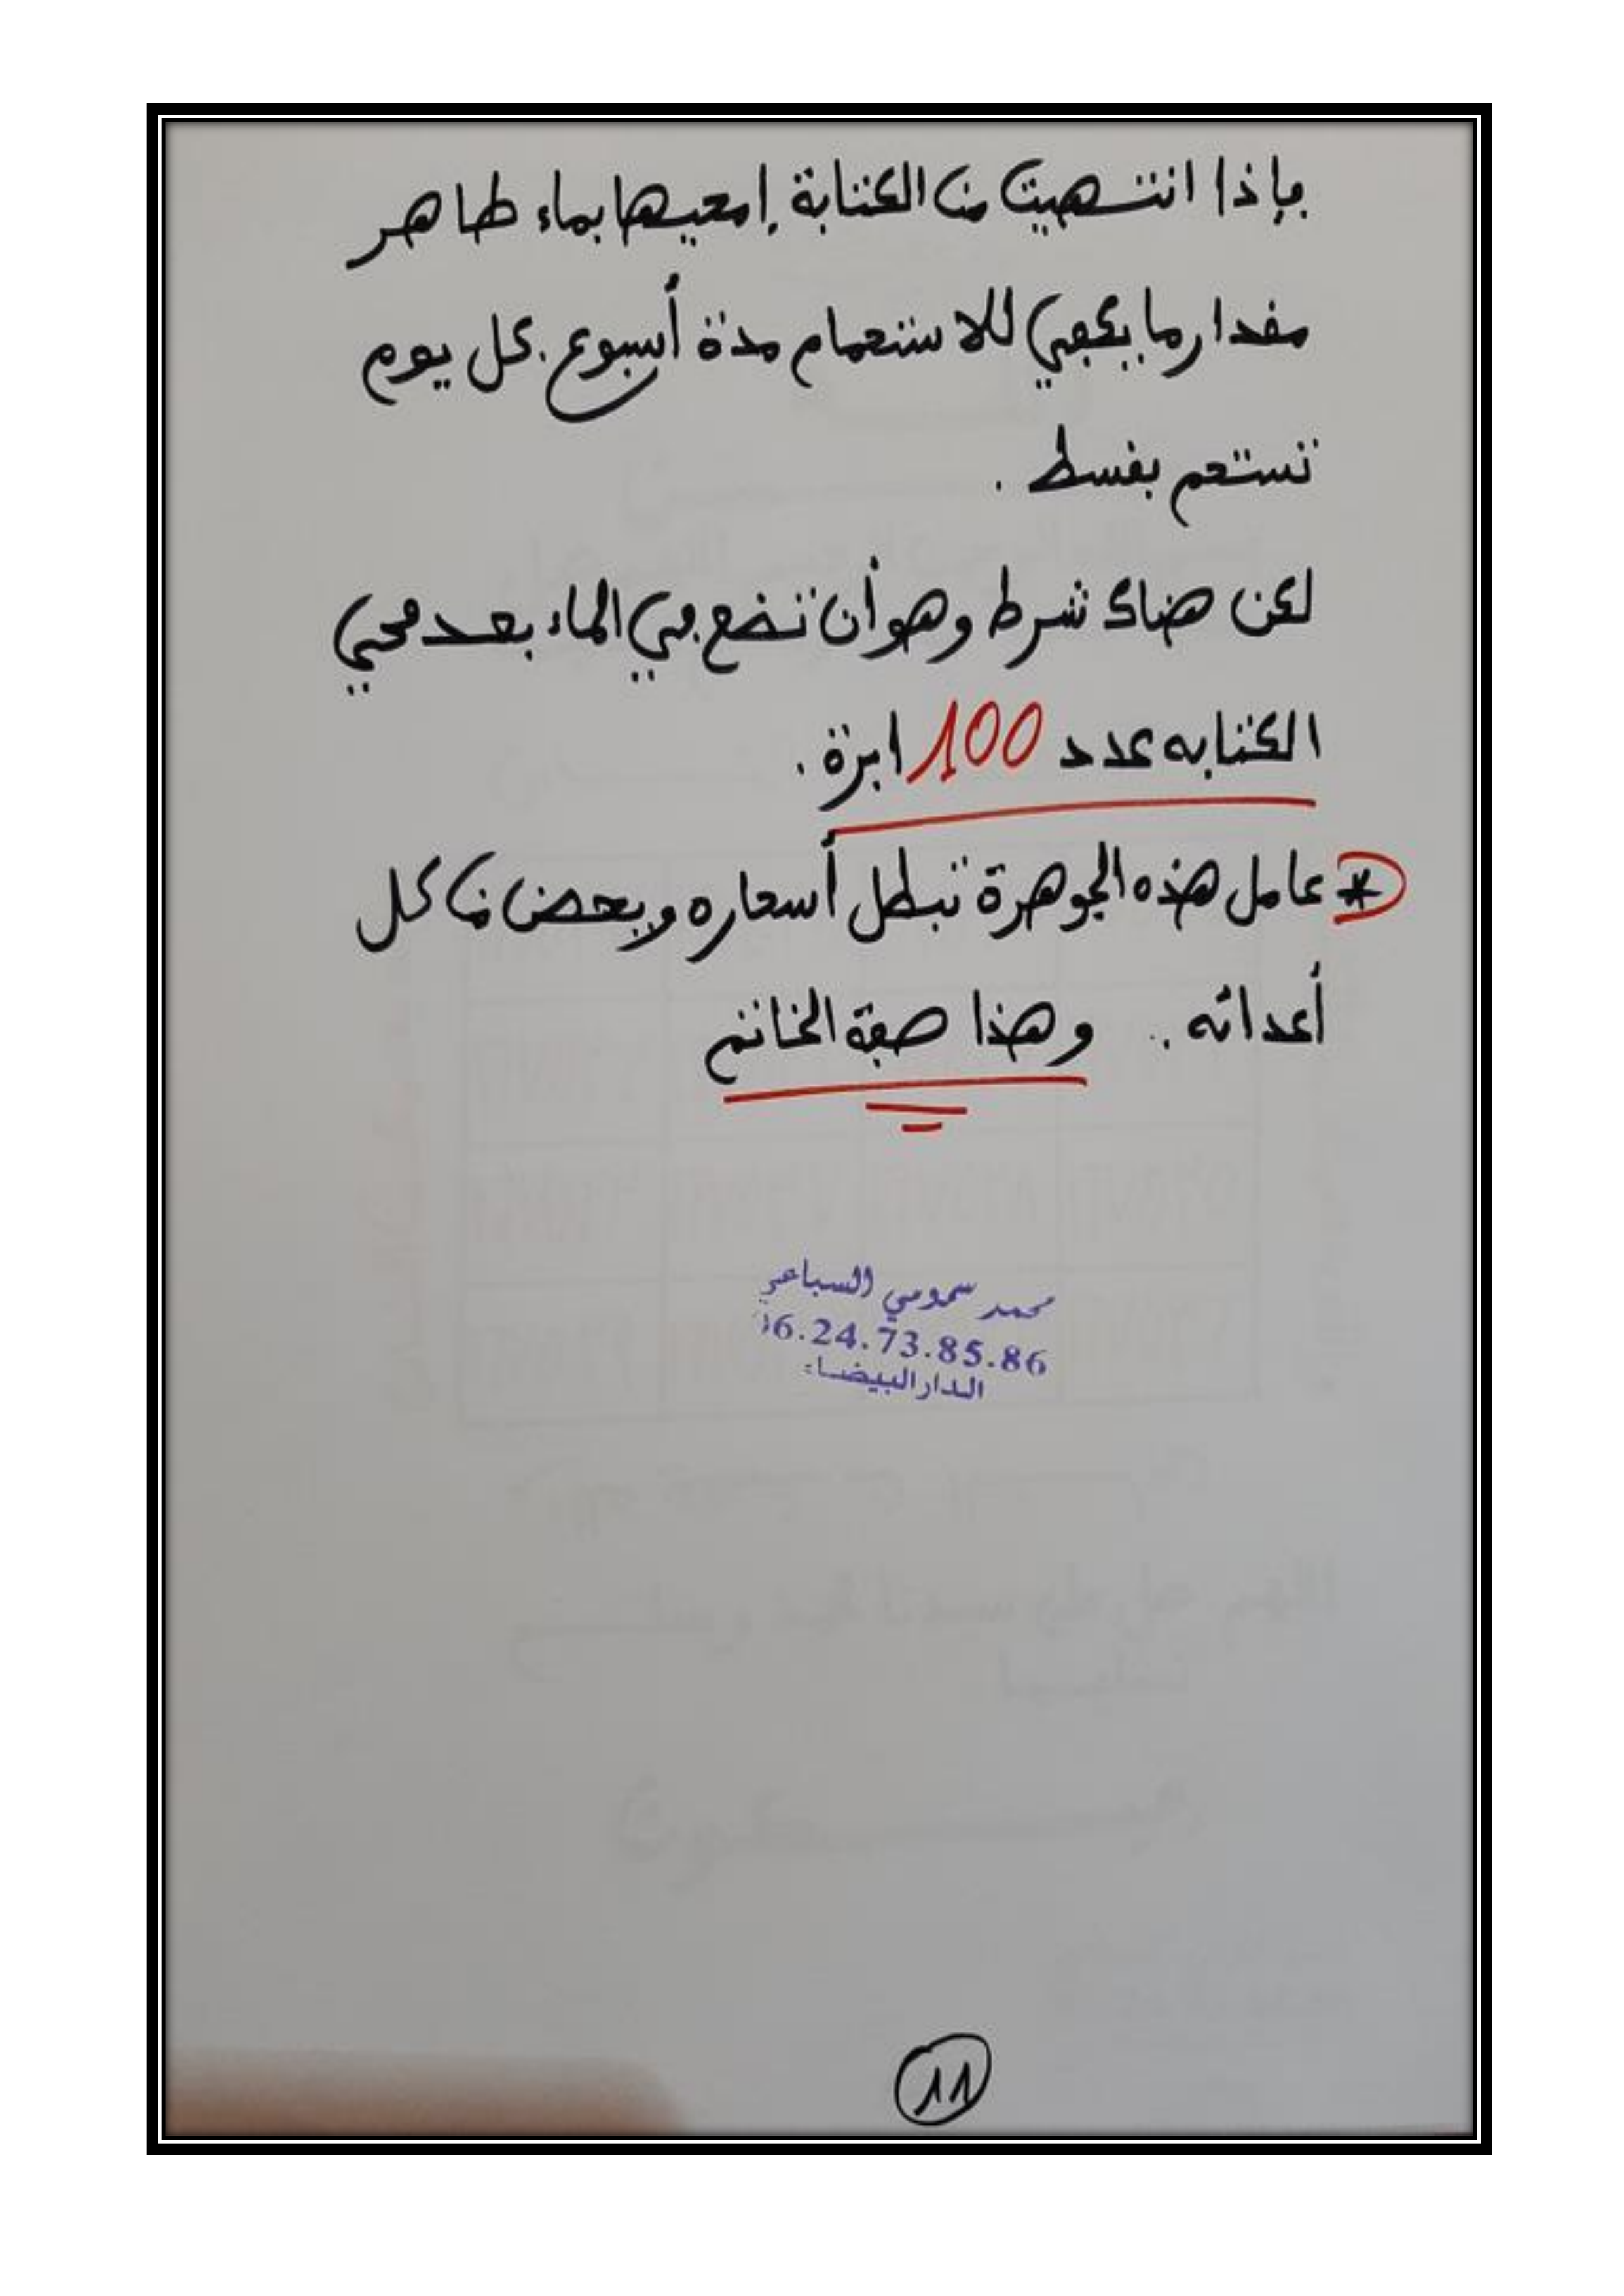 فإذا انتهيت من الكتابة إمعيها بماء طاهر
مقدار ما يكفي للاستحمام مدة أسبوع. كل يوم
تستحم بقسط .
لكن هناك شرط وهو أن تضع في الماء بعد محي
الكتابه عدد 100 ابرة .
* عامل هذه الجوهرة تبطل أسحاره ويحصن من كل
أعدائه . وهذا صفة الخاتم
محمد سمومي السباعي
06.24.73.85.86
الدار البيضاء
11